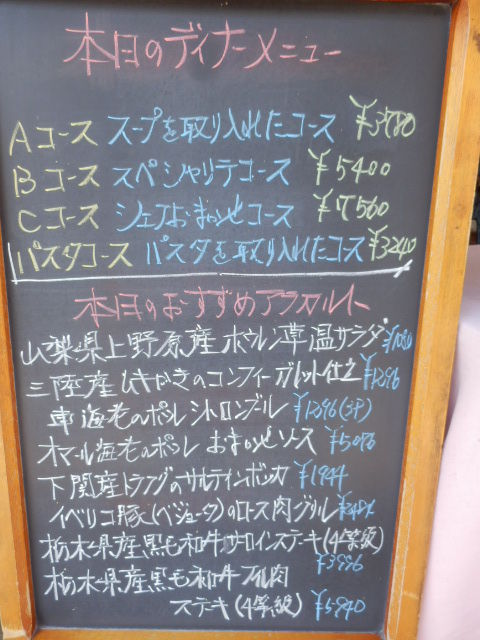 本日のディナーメニュー
Aコース スープを取り入れたコース ¥3780
Bコース スペシャリテコース ¥5400
Cコース シェフおまかせコース ¥7560
パスタコース パスタを取り入れたコース ¥3240
本日のおすすめアラカルト
山梨県上野原産 ホウレン草温サラダ ¥1080
三陸産ムキがきのコンフィー ガレット仕立 ¥1296
車海老のポレ シトロンブル ¥1296(3P)
オマール海老のポレ おまかせソース ¥5076
下関産トラフグのサルティンボッカ ¥1944
イベリコ豚(ベジョータ)のロース肉グリル
栃木県産黒毛和牛サロインステーキ(4等級)
¥3996
栃木県産黒毛和牛 フィレ肉
ステーキ(4等級) ¥5940